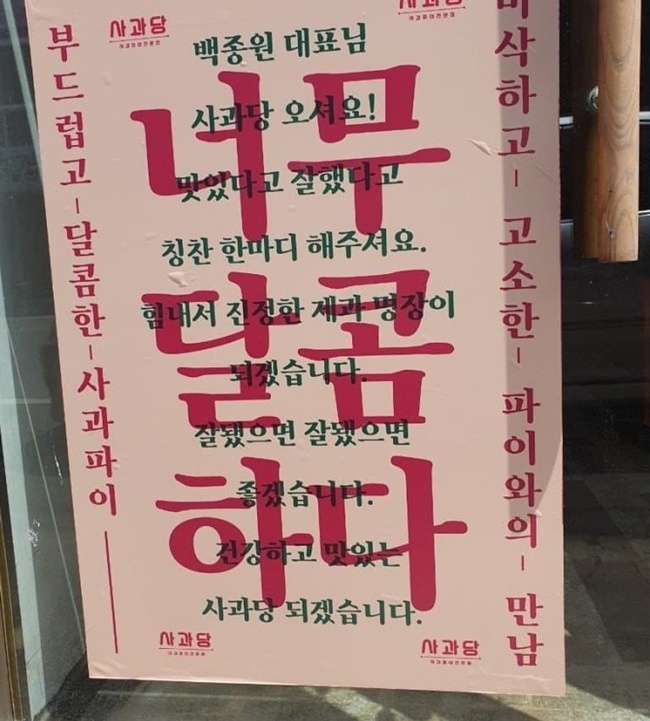 사과당
사과파이전문점
사과당
사과파이전문점
부드럽고 - 달콤한 - 사과파이
백종원 대표님
사과당 오셔요!
맛있다고 잘했다고
칭찬 한마디 해주셔요.
힘내서 진정한 제과 명장이
되겠습니다.
잘됐으면 잘됐으면
좋겠습니다.
건강하고 맛있는
사과당 되겠습니다.
너무
달콤
하다
바삭하고 - 고소한 - 파이와의 - 만남
사과당
사과파이전문점
사과당
사과파이전문점